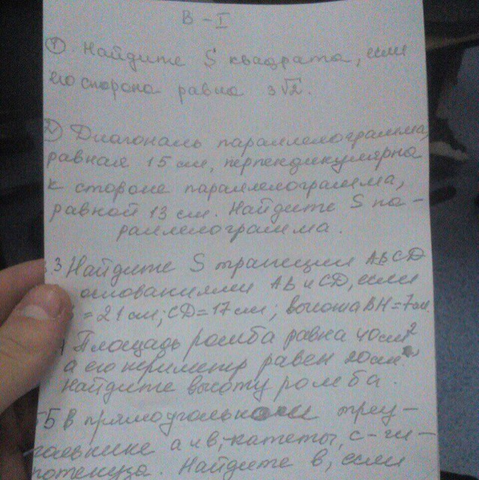 В - I
① Найдите S квадрата, если
его сторона равна 3√2.
② Диагональ параллелограмма,
равная 15 см, перпендикулярна
к стороне параллелограмма,
равной 13 см. Найдите S па-
раллелограмма.
3 Найдите S трапеции ABCD
основаниями AB и CD, если
= 21 см; CD = 17 см; высота BH = 7 см
Площадь ромба равна 40 см²
а его периметр равен 20 см.
Найдите высоту ромба.
5 В прямоугольном треу-
гольнике а и в,-катеты, с - ги-
потенуза. Найдите в, если